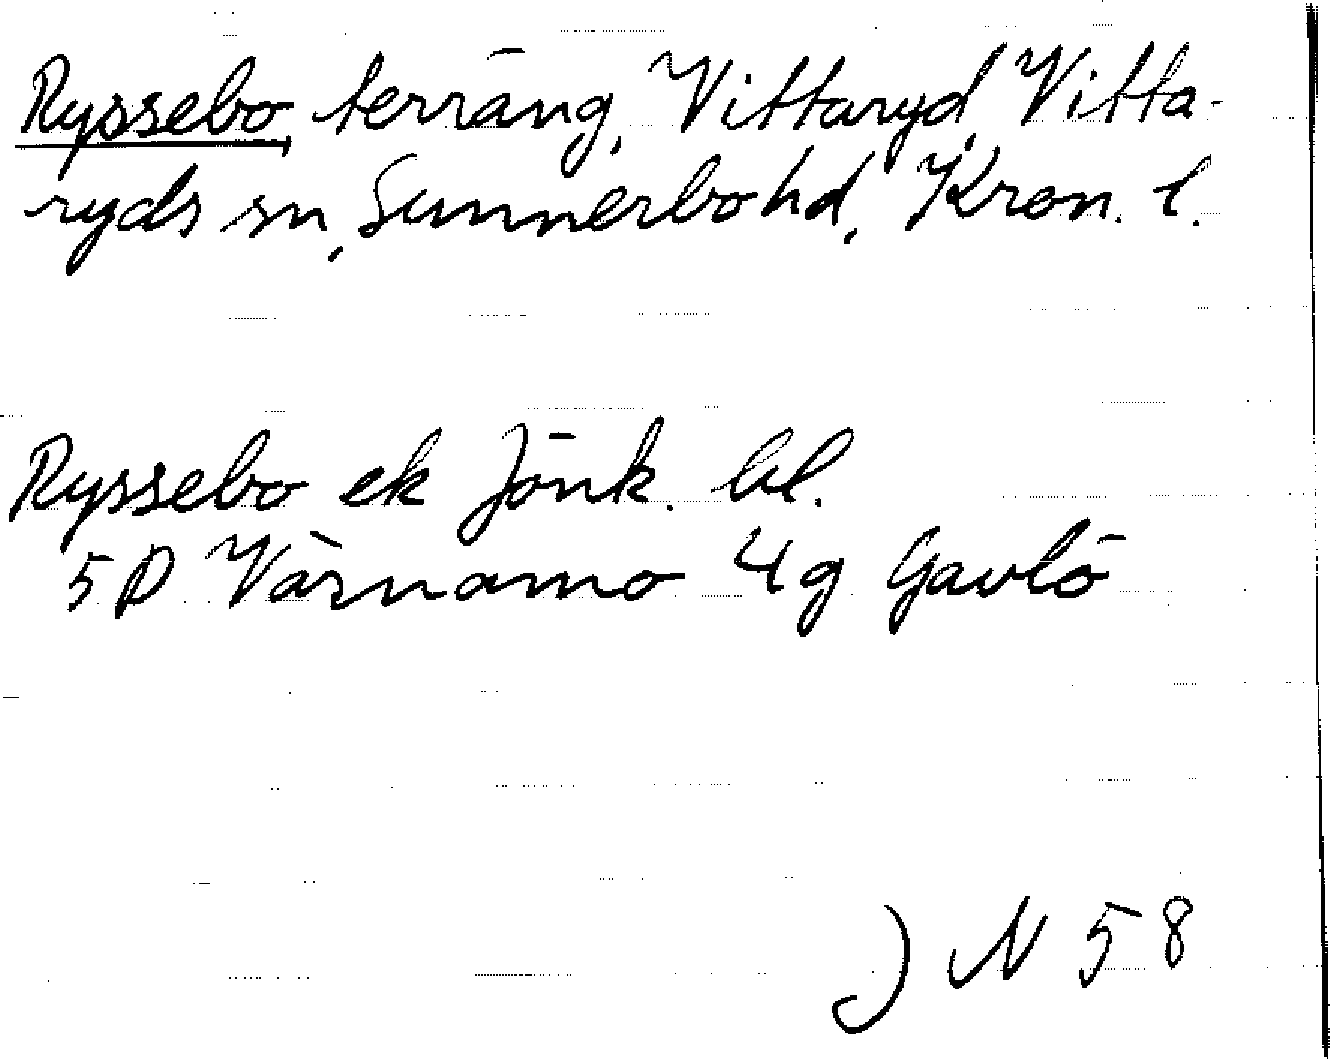 Ryssebo, terräng, Vittaryd, Vitta-
ryds sn, Sunnerbo hd, Kron. l.
Ryssebo ek Jönk. bl.
5D Värnamo 4g Gavlö
J N 58